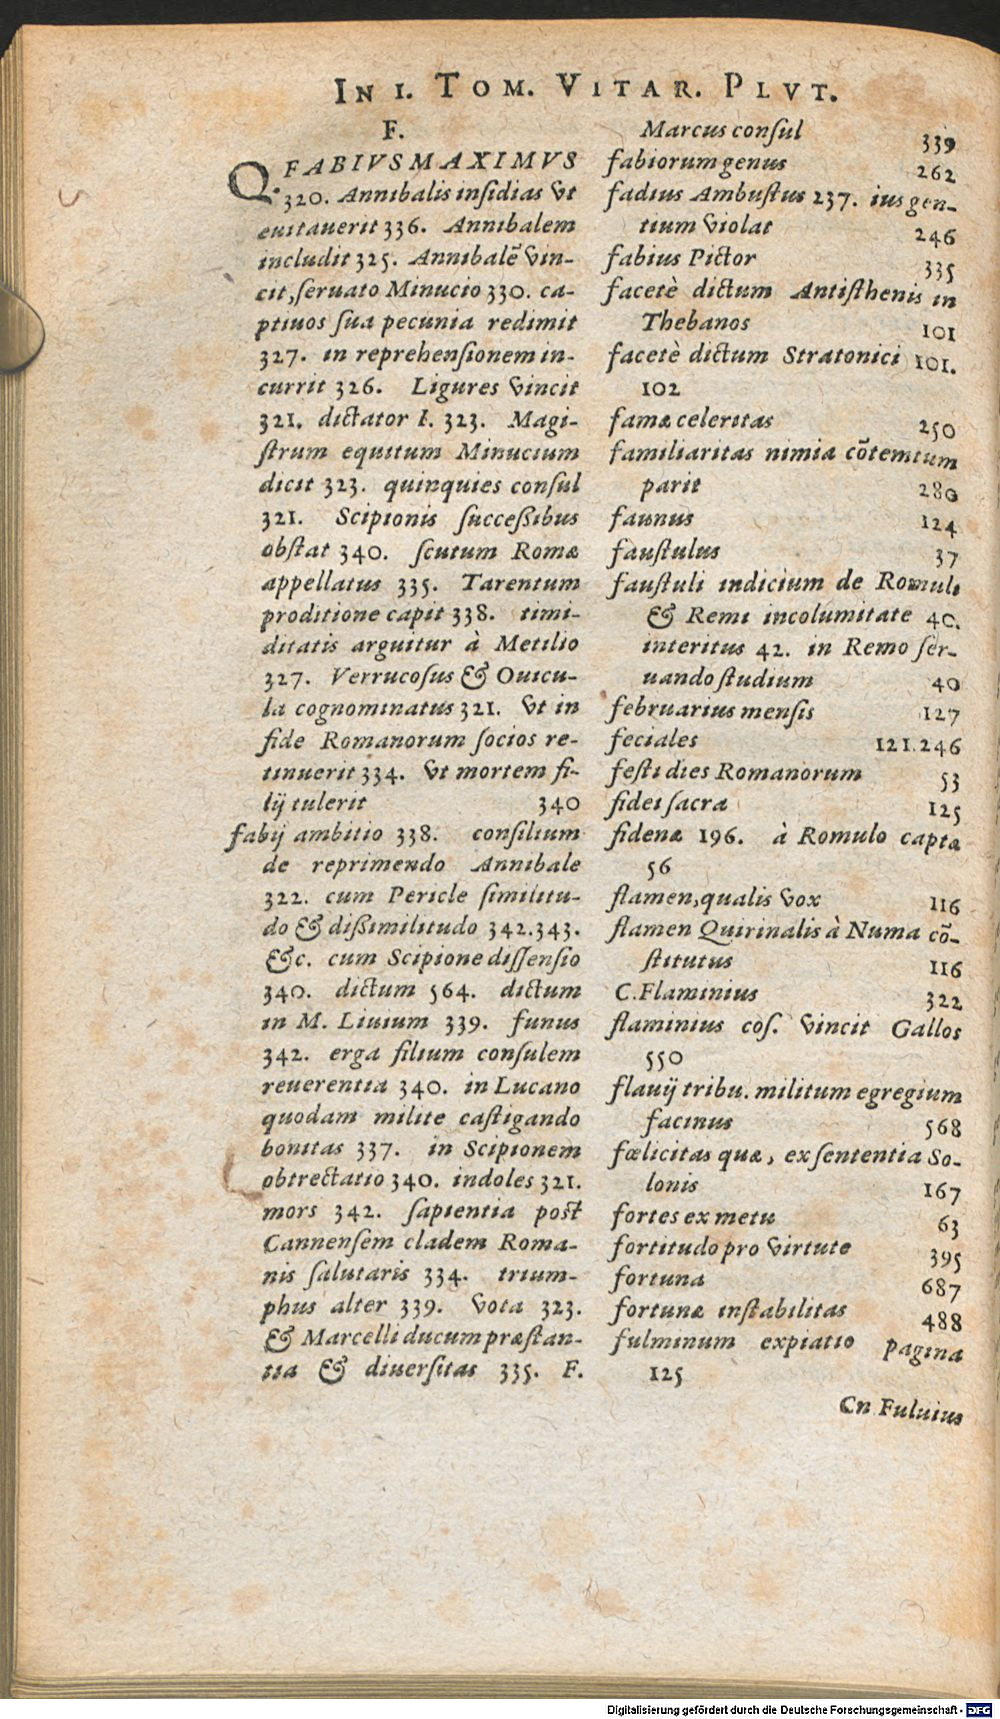 IN I. TOM. VITAR. PLVT.
F.
Q. FABIVS MAXIMVS
320. Annibalis insidias vt
euitauerit 336. Annibalem
includit 325. Annibalē vin-
cit, seruato Minucio 330. ca-
ptiuos sua pecunia redimit
327. in reprehensionem in-
currit 326. Ligures vincit
321. dictator I. 323. Magi-
strum equitum Minucium
dicit 323. quinquies consul
321. Scipionis successibus
obstat 340. scutum Romæ
appellatus 335. Tarentum
proditione capit 338. timi-
ditatis arguitur à Metilio
327. Verrucosus & Ouicu-
la cognominatus 321. vt in
fide Romanorum socios re-
tinuerit 334. vt mortem fi-
lij tulerit 340
fabij ambitio 338. consilium
de reprimendo Annibale
322. cum Pericle similitu-
do & dissimilitudo 342.343.
&c. cum Scipione dissensio
340. dictum 564. dictum
in M. Liuium 339. funus
342. erga filium consulem
reuerentia 340. in Lucano
quodam milite castigando
bonitas 337. in Scipionem
obtrectatio 340. indoles 321.
mors 342. sapientia post
Cannensem cladem Roma-
nis salutaris 334. trium-
phus alter 339. vota 323.
& Marcelli ducum præstan-
tia & diuersitas 335. F.
Marcus consul 339
fabiorum genus 262
fadius Ambustus 237. ius gen-
tium violat 246
fabius Pictor 335
facetè dictum Antisthenis in
Thebanos 101
facetè dictum Stratonici 101.
102
famæ celeritas 250
familiaritas nimia cōtemtum
parit 280
faunus 124
faustulus 37
faustuli indicium de Romuli
& Remi incolumitate 40.
interitus 42. in Remo ser-
uando studium 40
februarius mensis 127
feciales 121.246
festi dies Romanorum 53
fidei sacra 125
fidenæ 196. à Romulo captæ
56
flamen, qualis vox 116
flamen Quirinalis à Numa cō-
stitutus 116
C. Flaminius 322
flaminius cos. vincit Gallos
550
flauij tribu. militum egregium
facinus 568
fœlicitas quæ, ex sententia So-
lonis 167
fortes ex metu 63
fortitudo pro virtute 395
fortuna 687
fortunæ instabilitas 488
fulminum expiatio pagina
125
Cn Fuluius
Digitalisierung gefördert durch die Deutsche Forschungsgemeinschaft - DFG